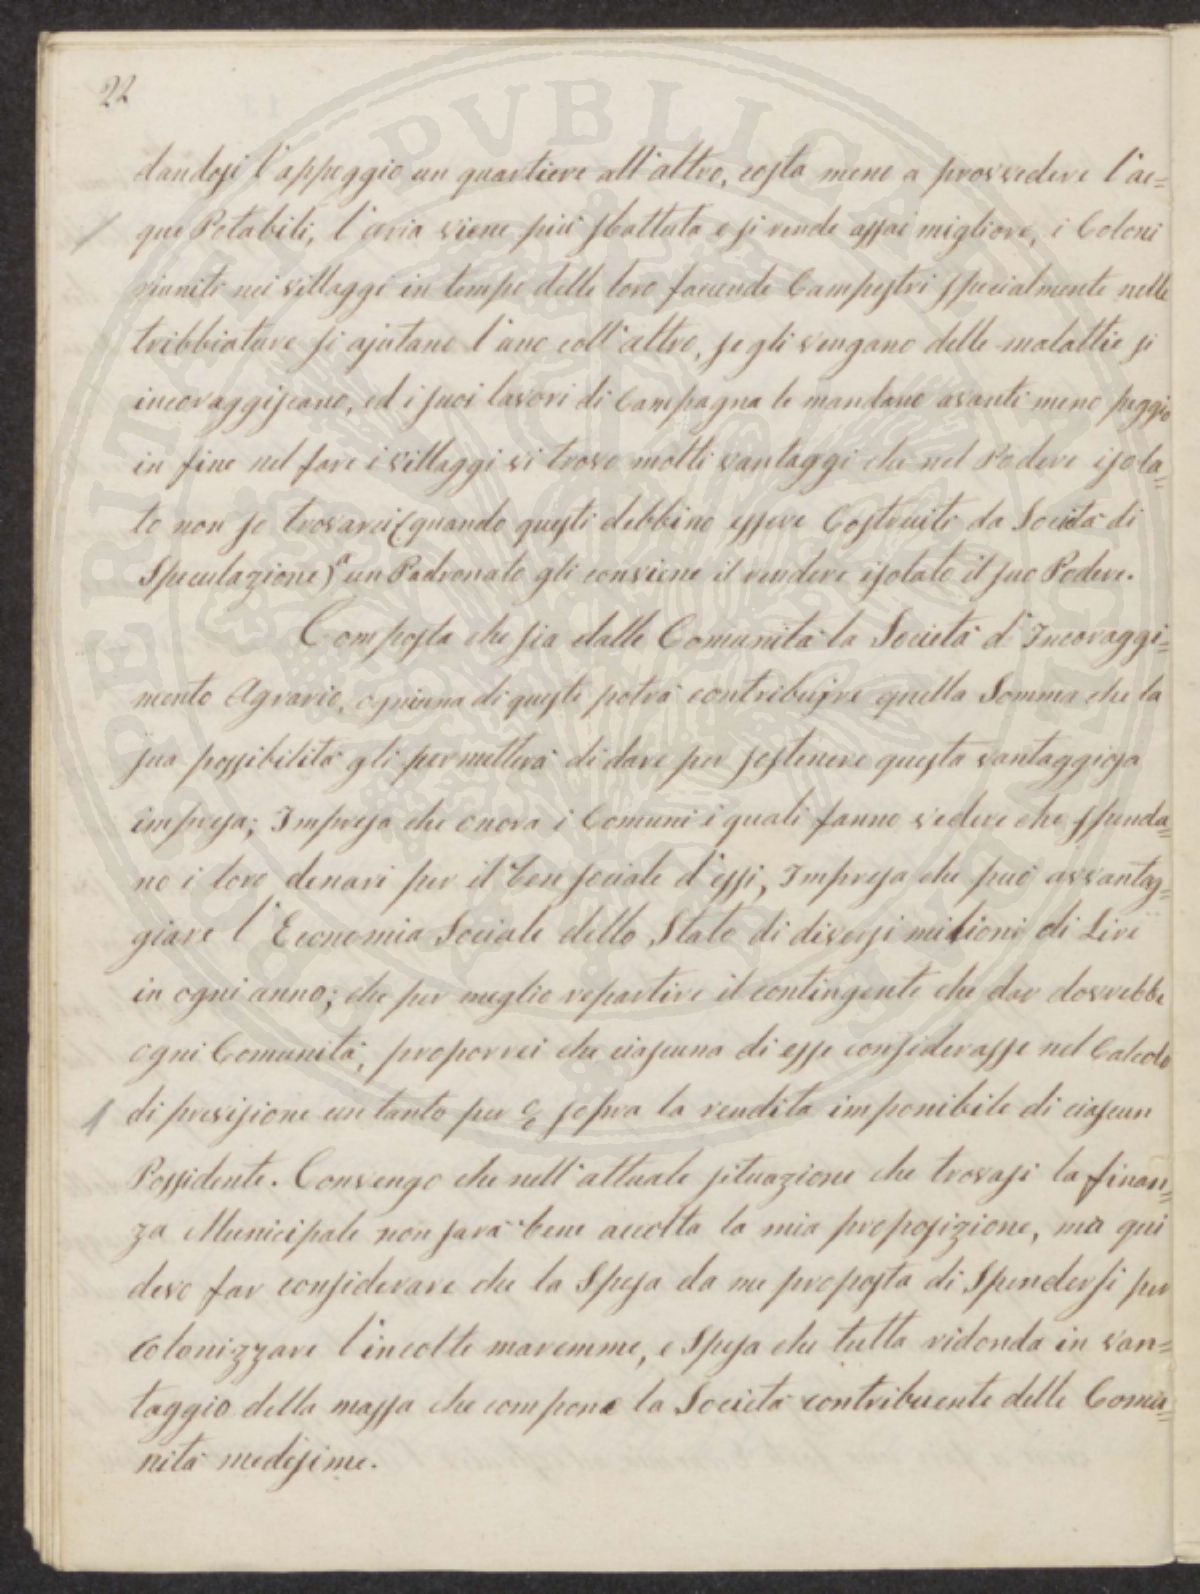 22
dandosi l'appoggio un quartiere all'altro, costa meno a provvedere l'ac=
que Potabili, l'aria viene più sbattuta e si rende assai migliore, i Coloni
riuniti nei villaggi in tempo delle loro faccende Campestri specialmente nelle
tribbiature si ajutano l'uno coll'altro, se gli vengano delle malattie si
incoraggiscano, ed i suoi lavori di Campagna le mandano avanti meno peggio
in fine nel fare i villaggi vi trovo molti vantaggi che nel Podere isola=
to non so trovarci (quando questi debbino essere Costruiti da Società di
Speculazione) a un Padronato gli conviene il rendere isolato il suo Podere.
Composta che sia dalle Comunità la Società d'Incoraggi=
mento Agrario, ogniuna di queste potrà contribuire quella Somma che la
sua possibilità gli permetterà di dare per sostenere questa vantaggiosa
impresa; Impresa che onora i Comuni i quali fanno vedere che spenda=
no i loro denari per il ben sociale d'essi, Impresa che può avvantag=
giare l'Economia Sociale dello Stato di diversi milioni di Lire
in ogni anno; che per meglio repartire il contingente che dar dovrebbe
ogni Comunità, proporrei che ciascuna di esse considerasse nel Calcolo
di previsione un tanto per c/c sopra la rendita imponibile di ciascun
Possidente. Convengo che nell'attuale situazione che trovasi la finan=
za Municipale non sarà bene accolta la mia proposizione, ma qui
devo far considerare che la Spesa da me proposta di Spendersi per
colonizzare l'incolte maremme, e Spesa che tutta ridonda in van=
taggio della massa che compone la Società contribuente delle Comu=
nità medesime.